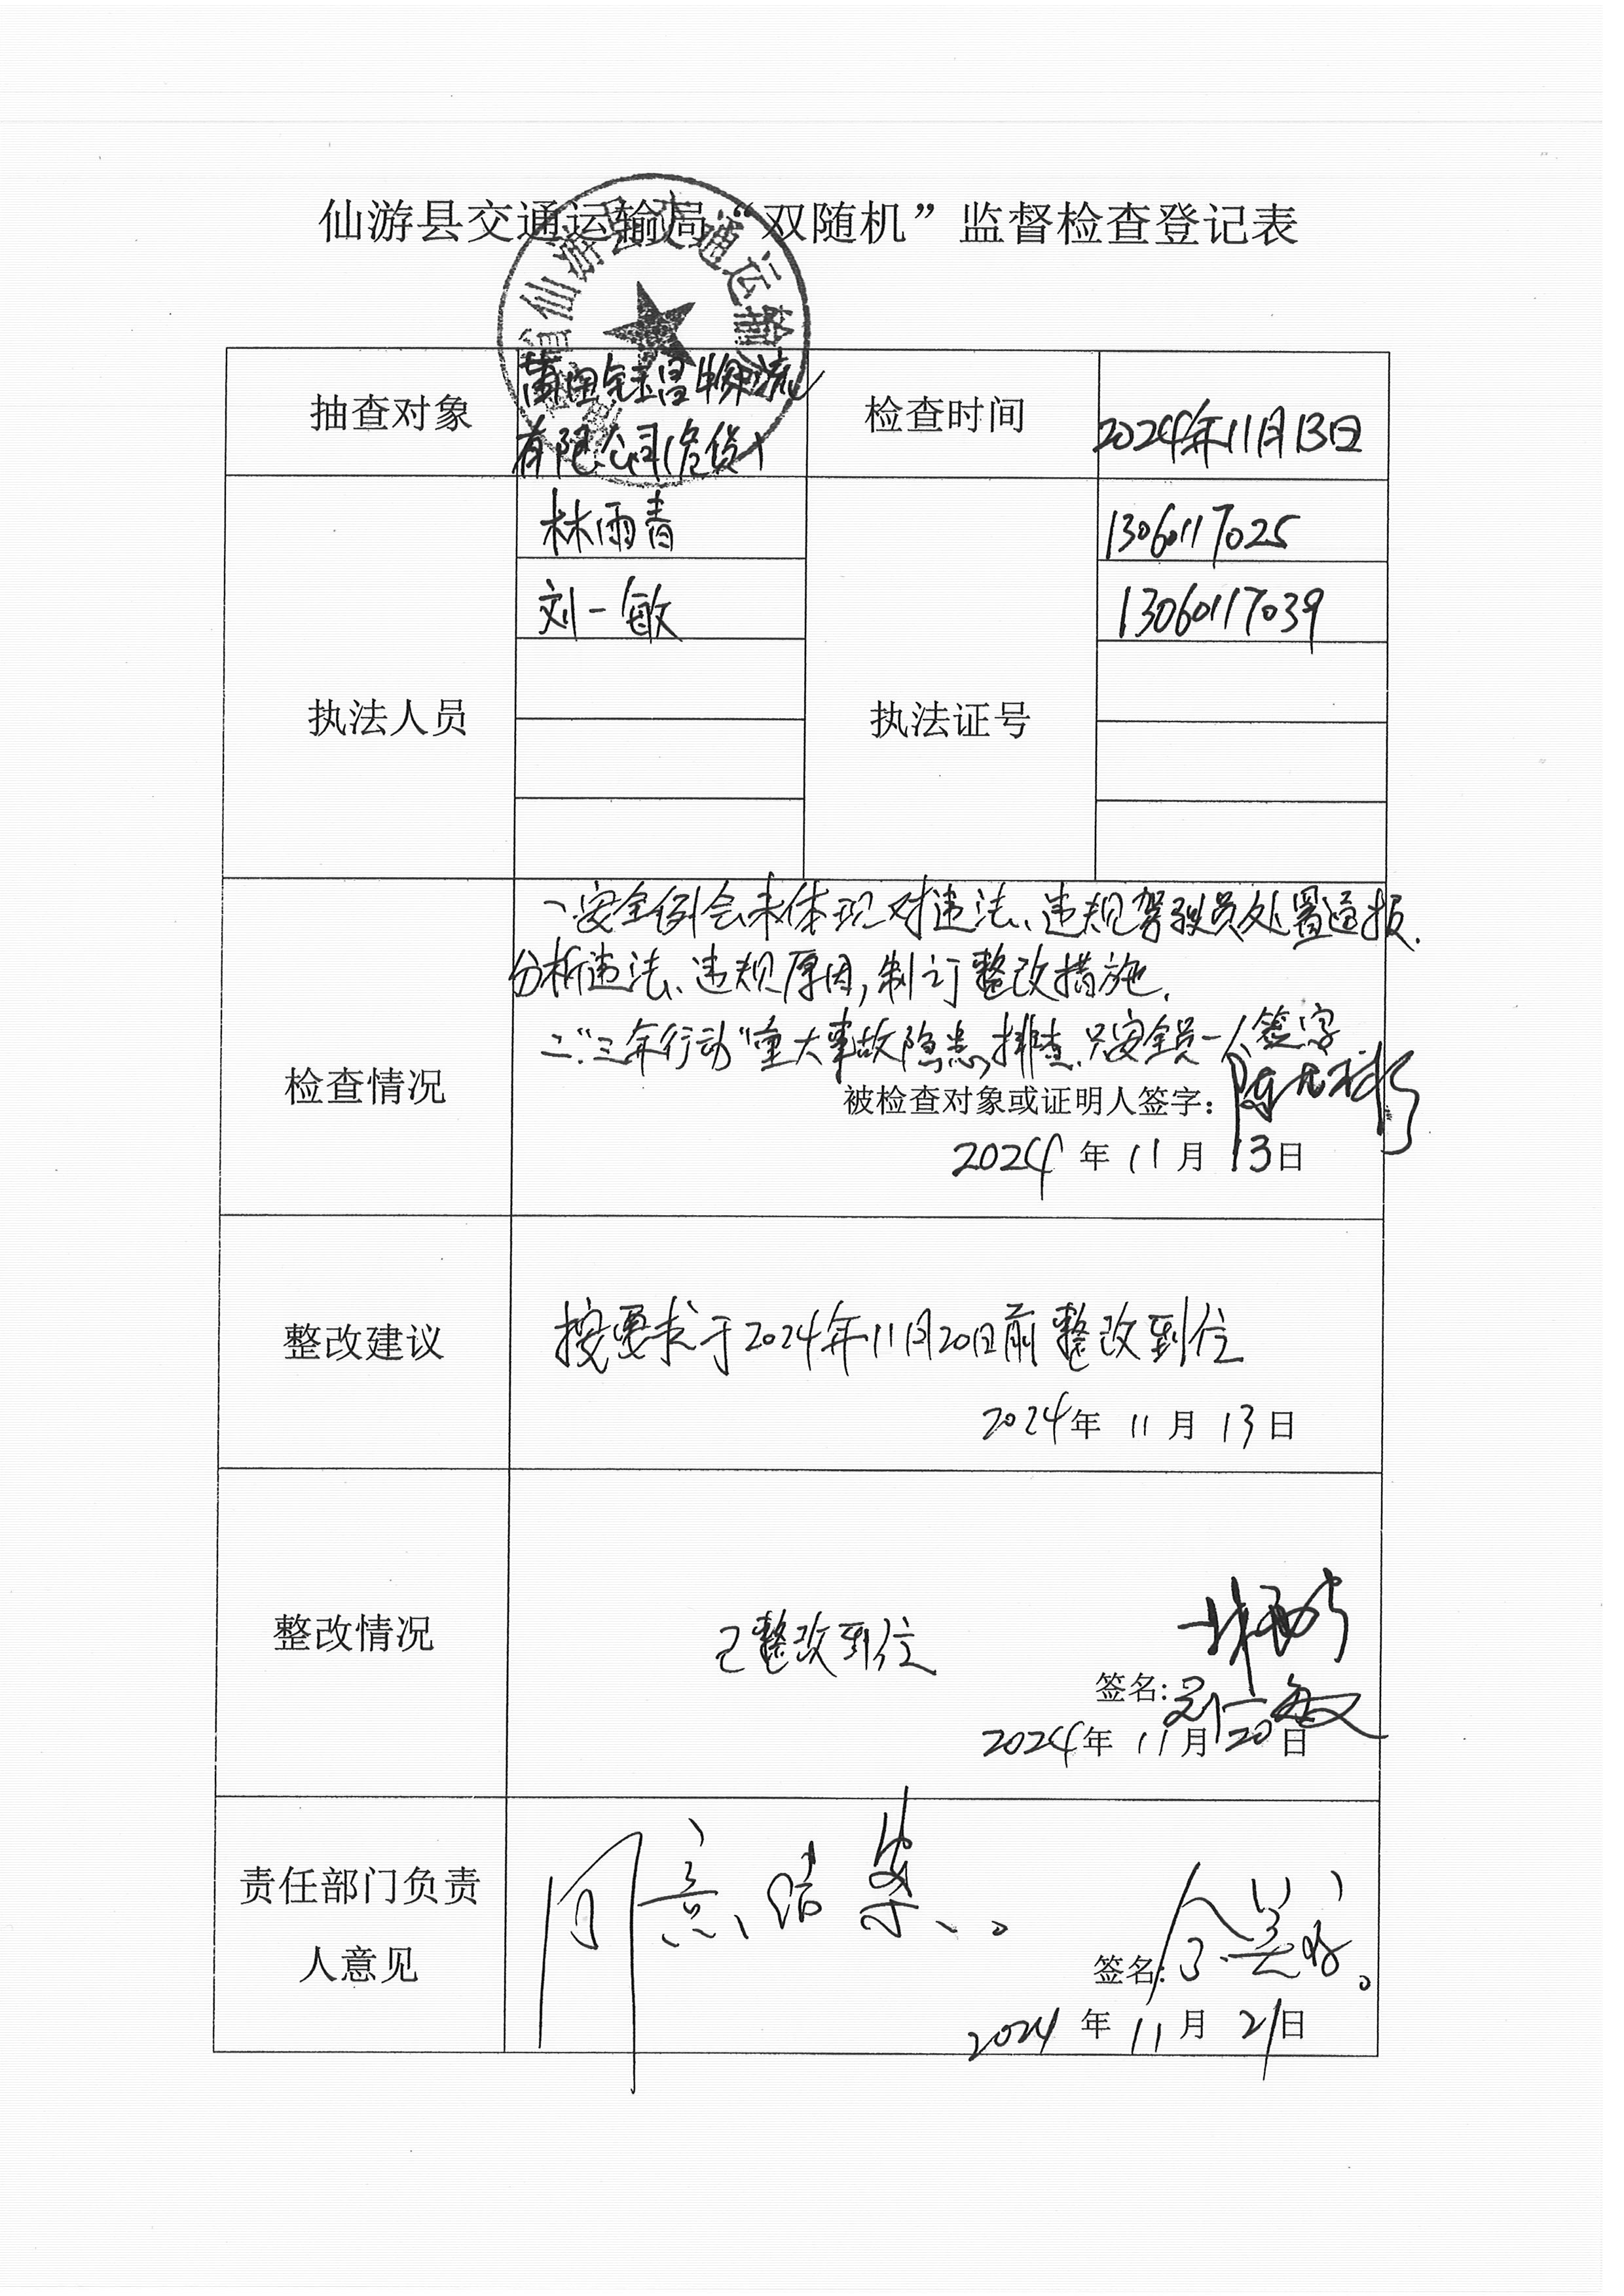 仙游县交通运输局“双随机”监督检查登记表
仙游县交通运输
抽查对象
莆田金昌物流
有限公司(危货)
检查时间
2024年11月13日
执法人员
林雨青
刘一敏
执法证号
13060117025
13060117039
检查情况
一.安全例会未体现对违法、违规驾驶员处置通报.
分析违法、违规原因,制订整改措施.
二.“三年行动”重大事故隐患排查.只安全员一人签字
被检查对象或证明人签字:
2024年11月13日
整改建议
按要求于2024年11月20日前整改到位
2024年11月13日
整改情况
已整改到位
林雨青
签名:刘一敏
2024年11月20日
责任部门负责
人意见
同意结案。
签名:
2024年11月21日